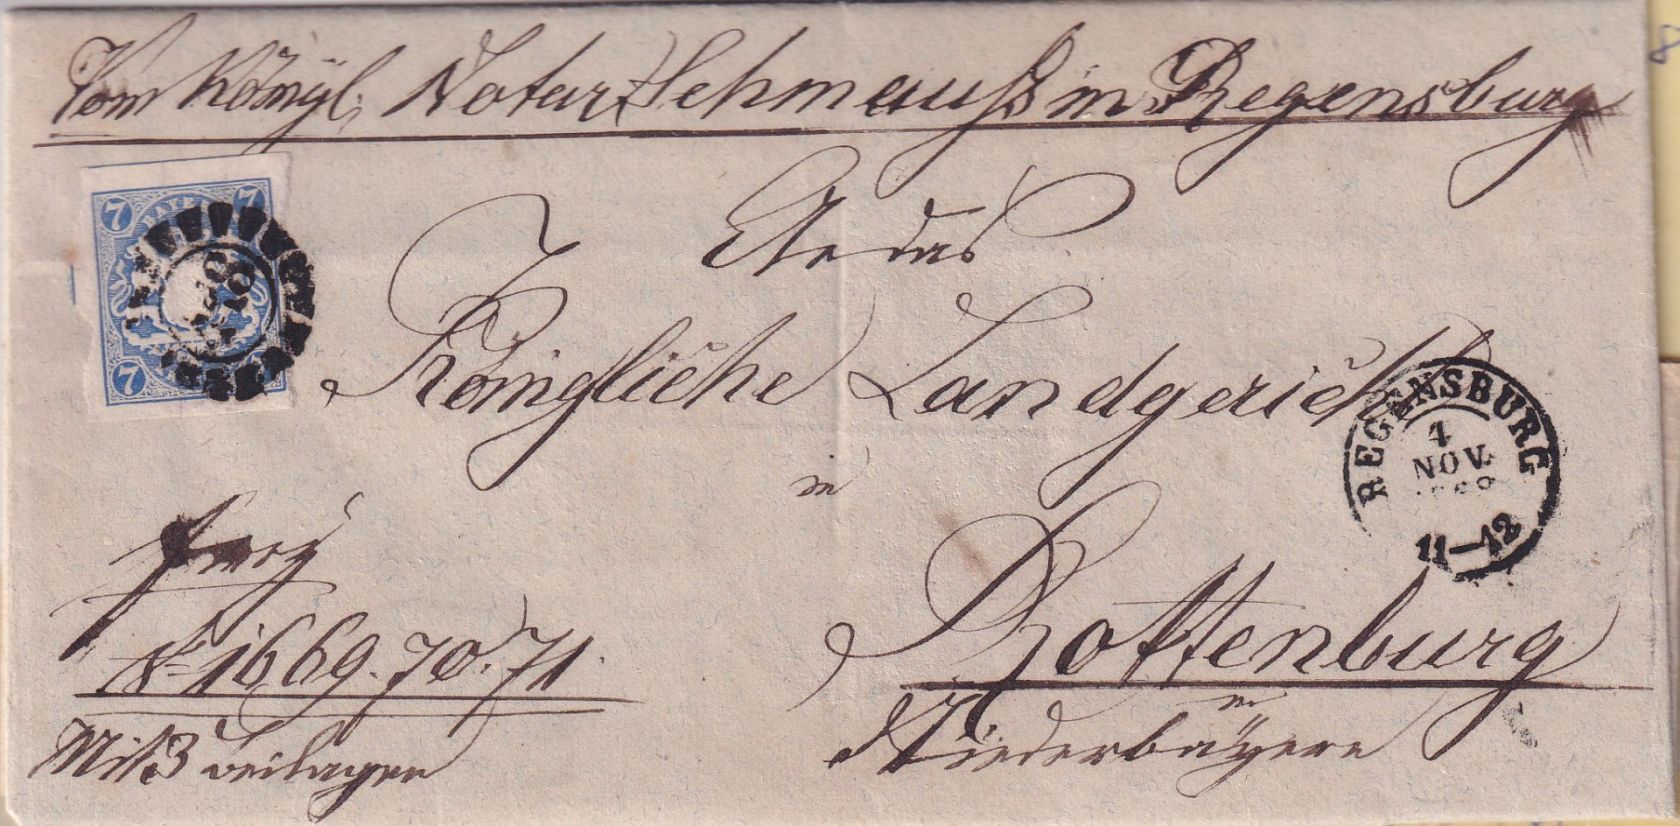 Vom Königl. Notar Schmauß in Regensburg
7 BAYERN 7
An das
Königliche Landgericht
in
REGENSBURG
4
NOV.
11–12
frey
Rottenburg
No 1669. 70. 71.
in
Niederbayern
Mit 3 Beilagen
7